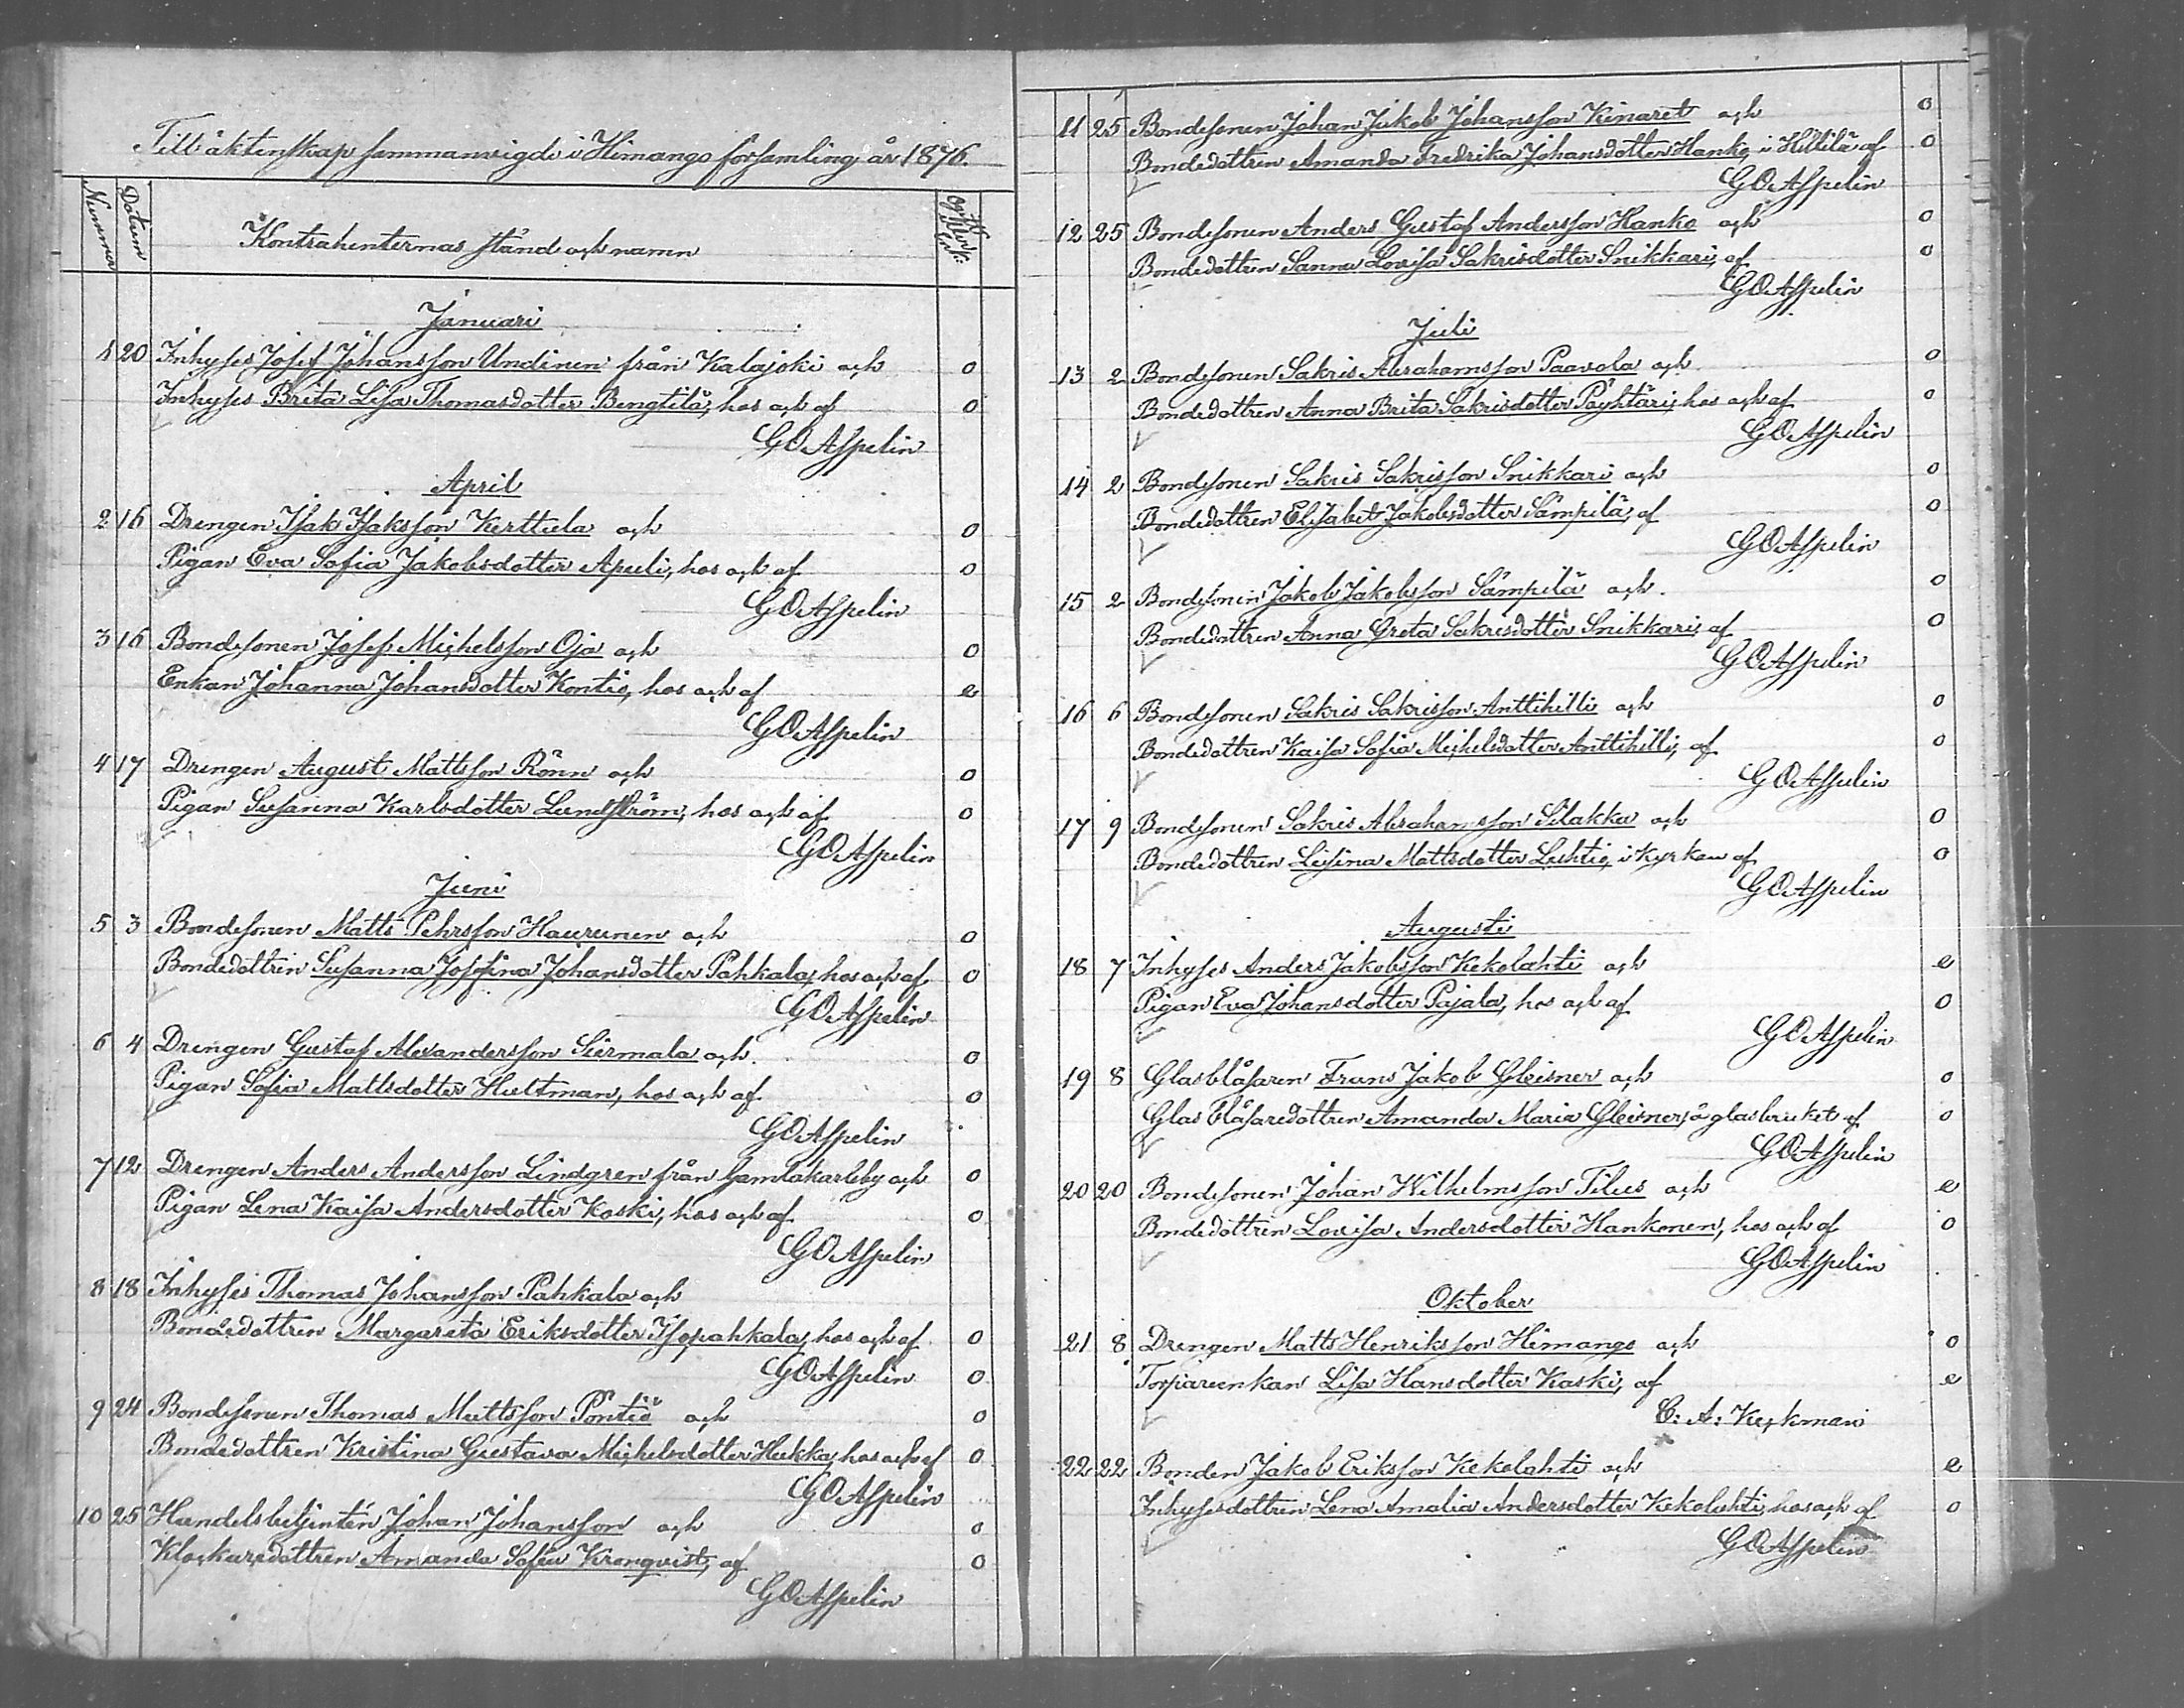 Till äktenskap sammanvigde i Himango församling år 1876.
Nummer
Datum
Kontrahenternas stånd och namn
Januari
1 20 Inhyses Josef Johansson Undinen från Kalajoki och o
Inhyses Brita Lisa Thomasdotter Bengtilä, hos och af o
GOAspelin
April
2 16 Drengen Isak Isaksson Kerttula och o
Pigan Eva Sofia Jakobsdotter Apuli, hos och af o
GOAspelin
3 16 Bondesonen Josef Michelsson Oja och o
Enkan Johanna Johansdotter Kontio, hos och af e
GOAspelin
4 17 Drengen August Mattsson Rönn och o
Pigan Susanna Karlsdotter Lundström, hos och af o
GOAspelin
Juni
5 3 Bondesonen Matts Pehrsson Haurunen och o
Bondedottren Susanna Josefina Johansdotter Pahkala, hos och af o
GOAspelin
6 4 Drengen Gustaf Alexandersson Siirmala och o
Pigan Sofia Mattsdotter Hultman, hos och af o
GOAspelin
7 12 Drengen Anders Andersson Lindgren från Gamlakarleby och o
Pigan Lena Kaisa Andersdotter Koski, hos och af o
GOAspelin
8 18 Inhyses Thomas Johansson Pahkala och
Bondedottren Margareta Eriksdotter Isopahkala, hos och af o
GOAspelin o
9 24 Bondesonen Thomas Mattsson Pöntiö och o
Bondedottren Kristina Gustava Michelsdotter Hukka, hos och af o
GOAspelin
10 25 Handelsbetjenten Johan Johansson och o
Klockaredottren Amanda Sofia Kronqvist, af o
GOAspelin
11 25 Bondesonen Johan Jakob Johansson Kinaret och o
Bondedottren Amanda Fredrika Johansdotter Hanko, i Hillilä af o
GOAspelin
12 25 Bondesonen Anders Gustaf Andersson Hanko och o
Bondedottren Sanna Lovisa Sakrisdotter Snikkari, af o
GOAspelin
Juli
13 2 Bondesonen Sakris Abrahamsson Paavola och o
Bondedottren Anna Brita Sakrisdotter Pöyhtäri, hos och af o
GOAspelin
14 2 Bondesonen Sakris Sakrisson Snikkari och o
Bondedottren Elisabet Jakobsdotter Sämpilä, af o
GOAspelin
15 2 Bondesonen Jakob Jakobsson Sämpilä och o
Bondedottren Anna Greta Sakrisdotter Snikkari, af o
GOAspelin
16 6 Bondesonen Sakris Sakrisson Anttihilli och o
Bondedottren Kaisa Sofia Michelsdotter Anttihilli, af o
GOAspelin
17 9 Bondesonen Sakris Abrahamsson Silakka och o
Bondedottren Lisina Mattsdotter Luhtio, i Kyrkan af o
GOAspelin
Augusti
18 7 Inhyses Anders Jakobsson Kekolahti och e
Pigan Eva Johansdotter Pajala, hos och af o
GOAspelin
19 8 Glasblåsaren Frans Jakob Gleisner och o
Glasblåsaredottren Amanda Maria Gleisner, å glasbruket af o
GOAspelin
20 20 Bondesonen Johan Wilhelmsson Tilus och e
Bondedottren Lovisa Andersdotter Hankonen, hos och af o
GOAspelin
Oktober
21 8 Drengen Matts Henriksson Himango och o
Torpareenkan Lisa Hansdotter Kaski, af e
C: A: Keckman
22 22 Bonden Jakob Eriksson Kekolahti och e
Inhysesdottren Lena Amalia Andersdotter Kekolahti, hos och af o
GOAspelin